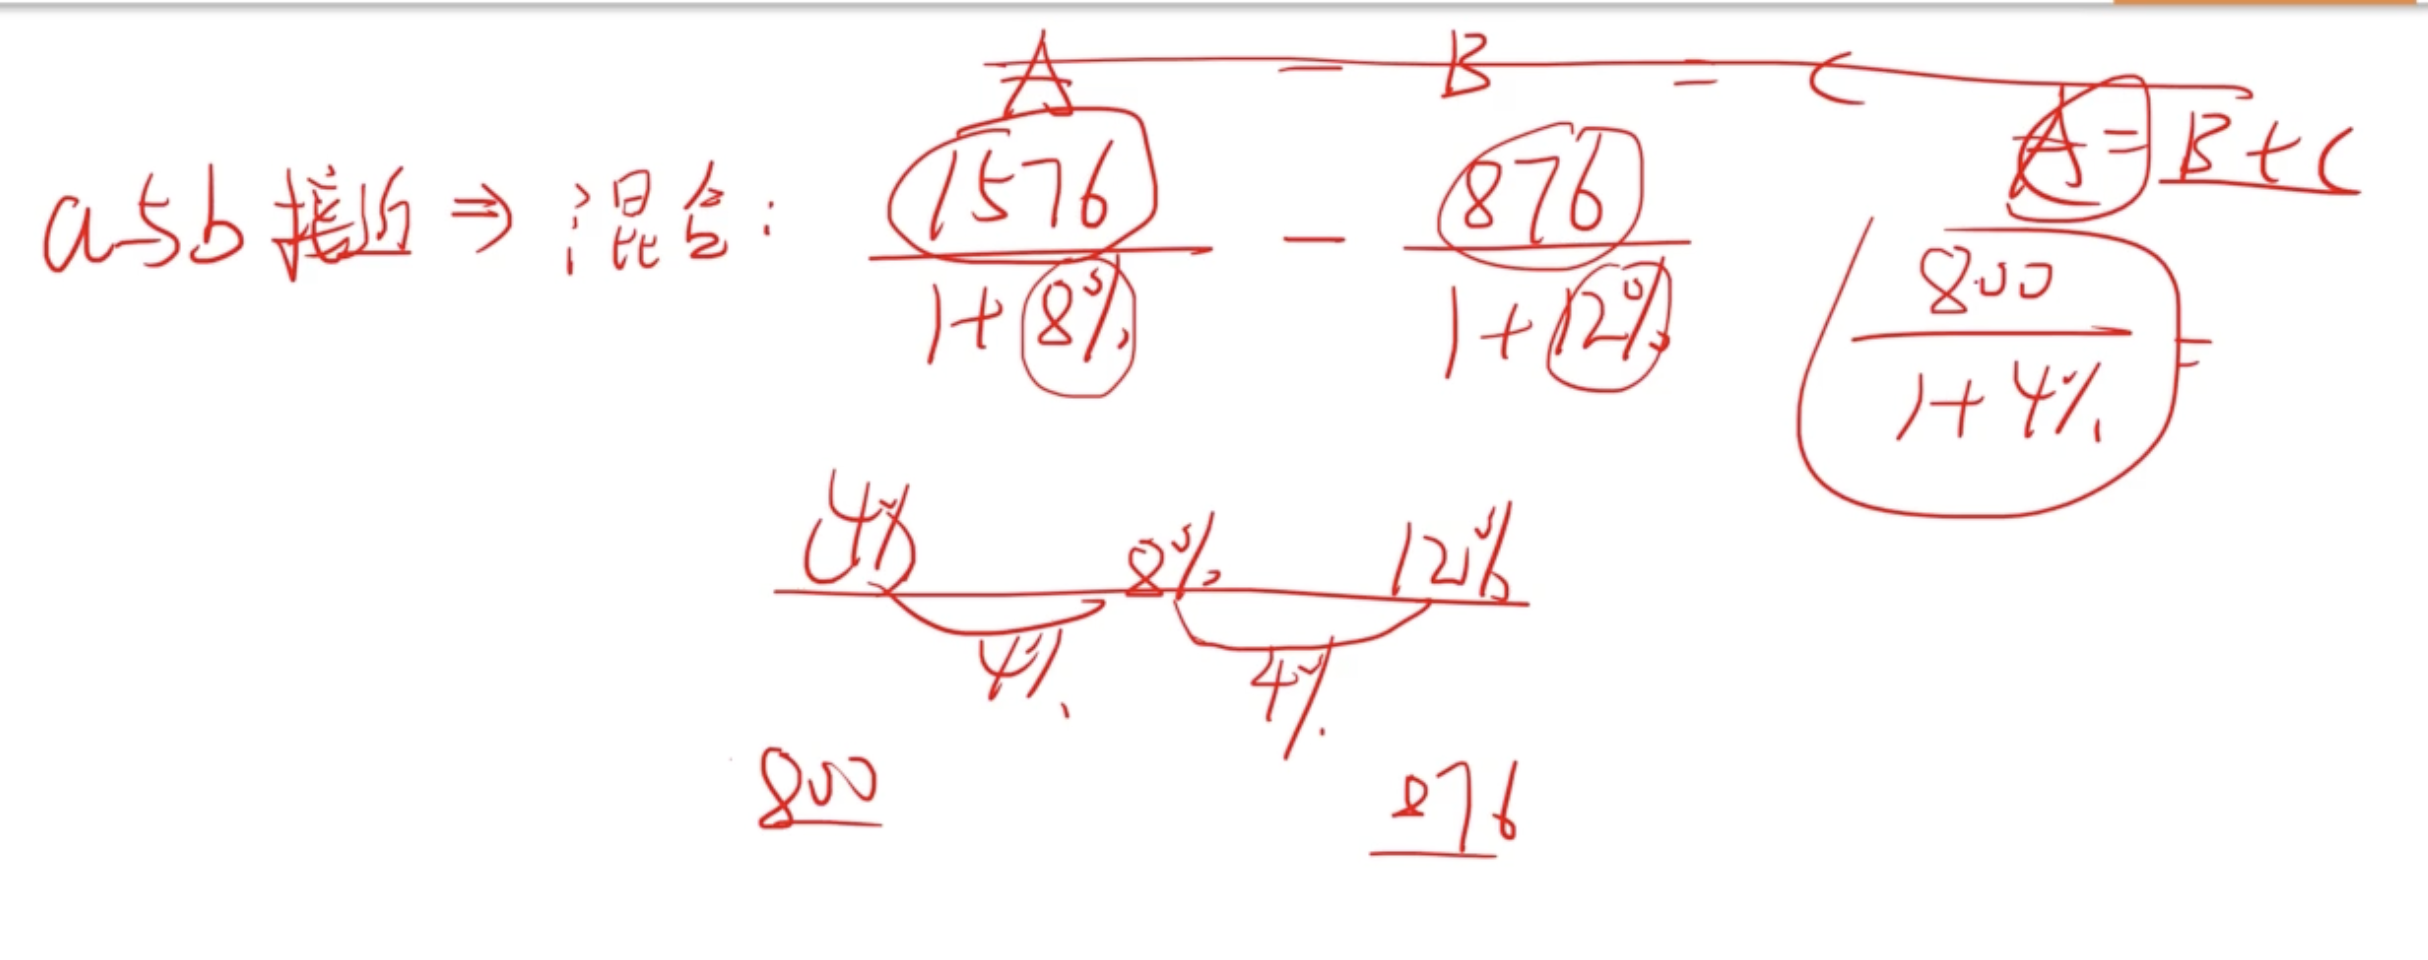 A - B = C
A = B + C
a与b接近 ⇒ 混合: 1576/(1+8%) - 876/(1+12%)
800/(1+4%) =
4% 8% 12%
4% 4%
800 876